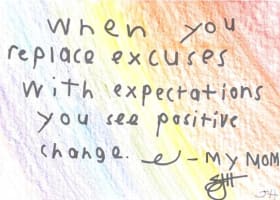 when you
replace excuses
with expectations
you see positive
change. - MY MOM